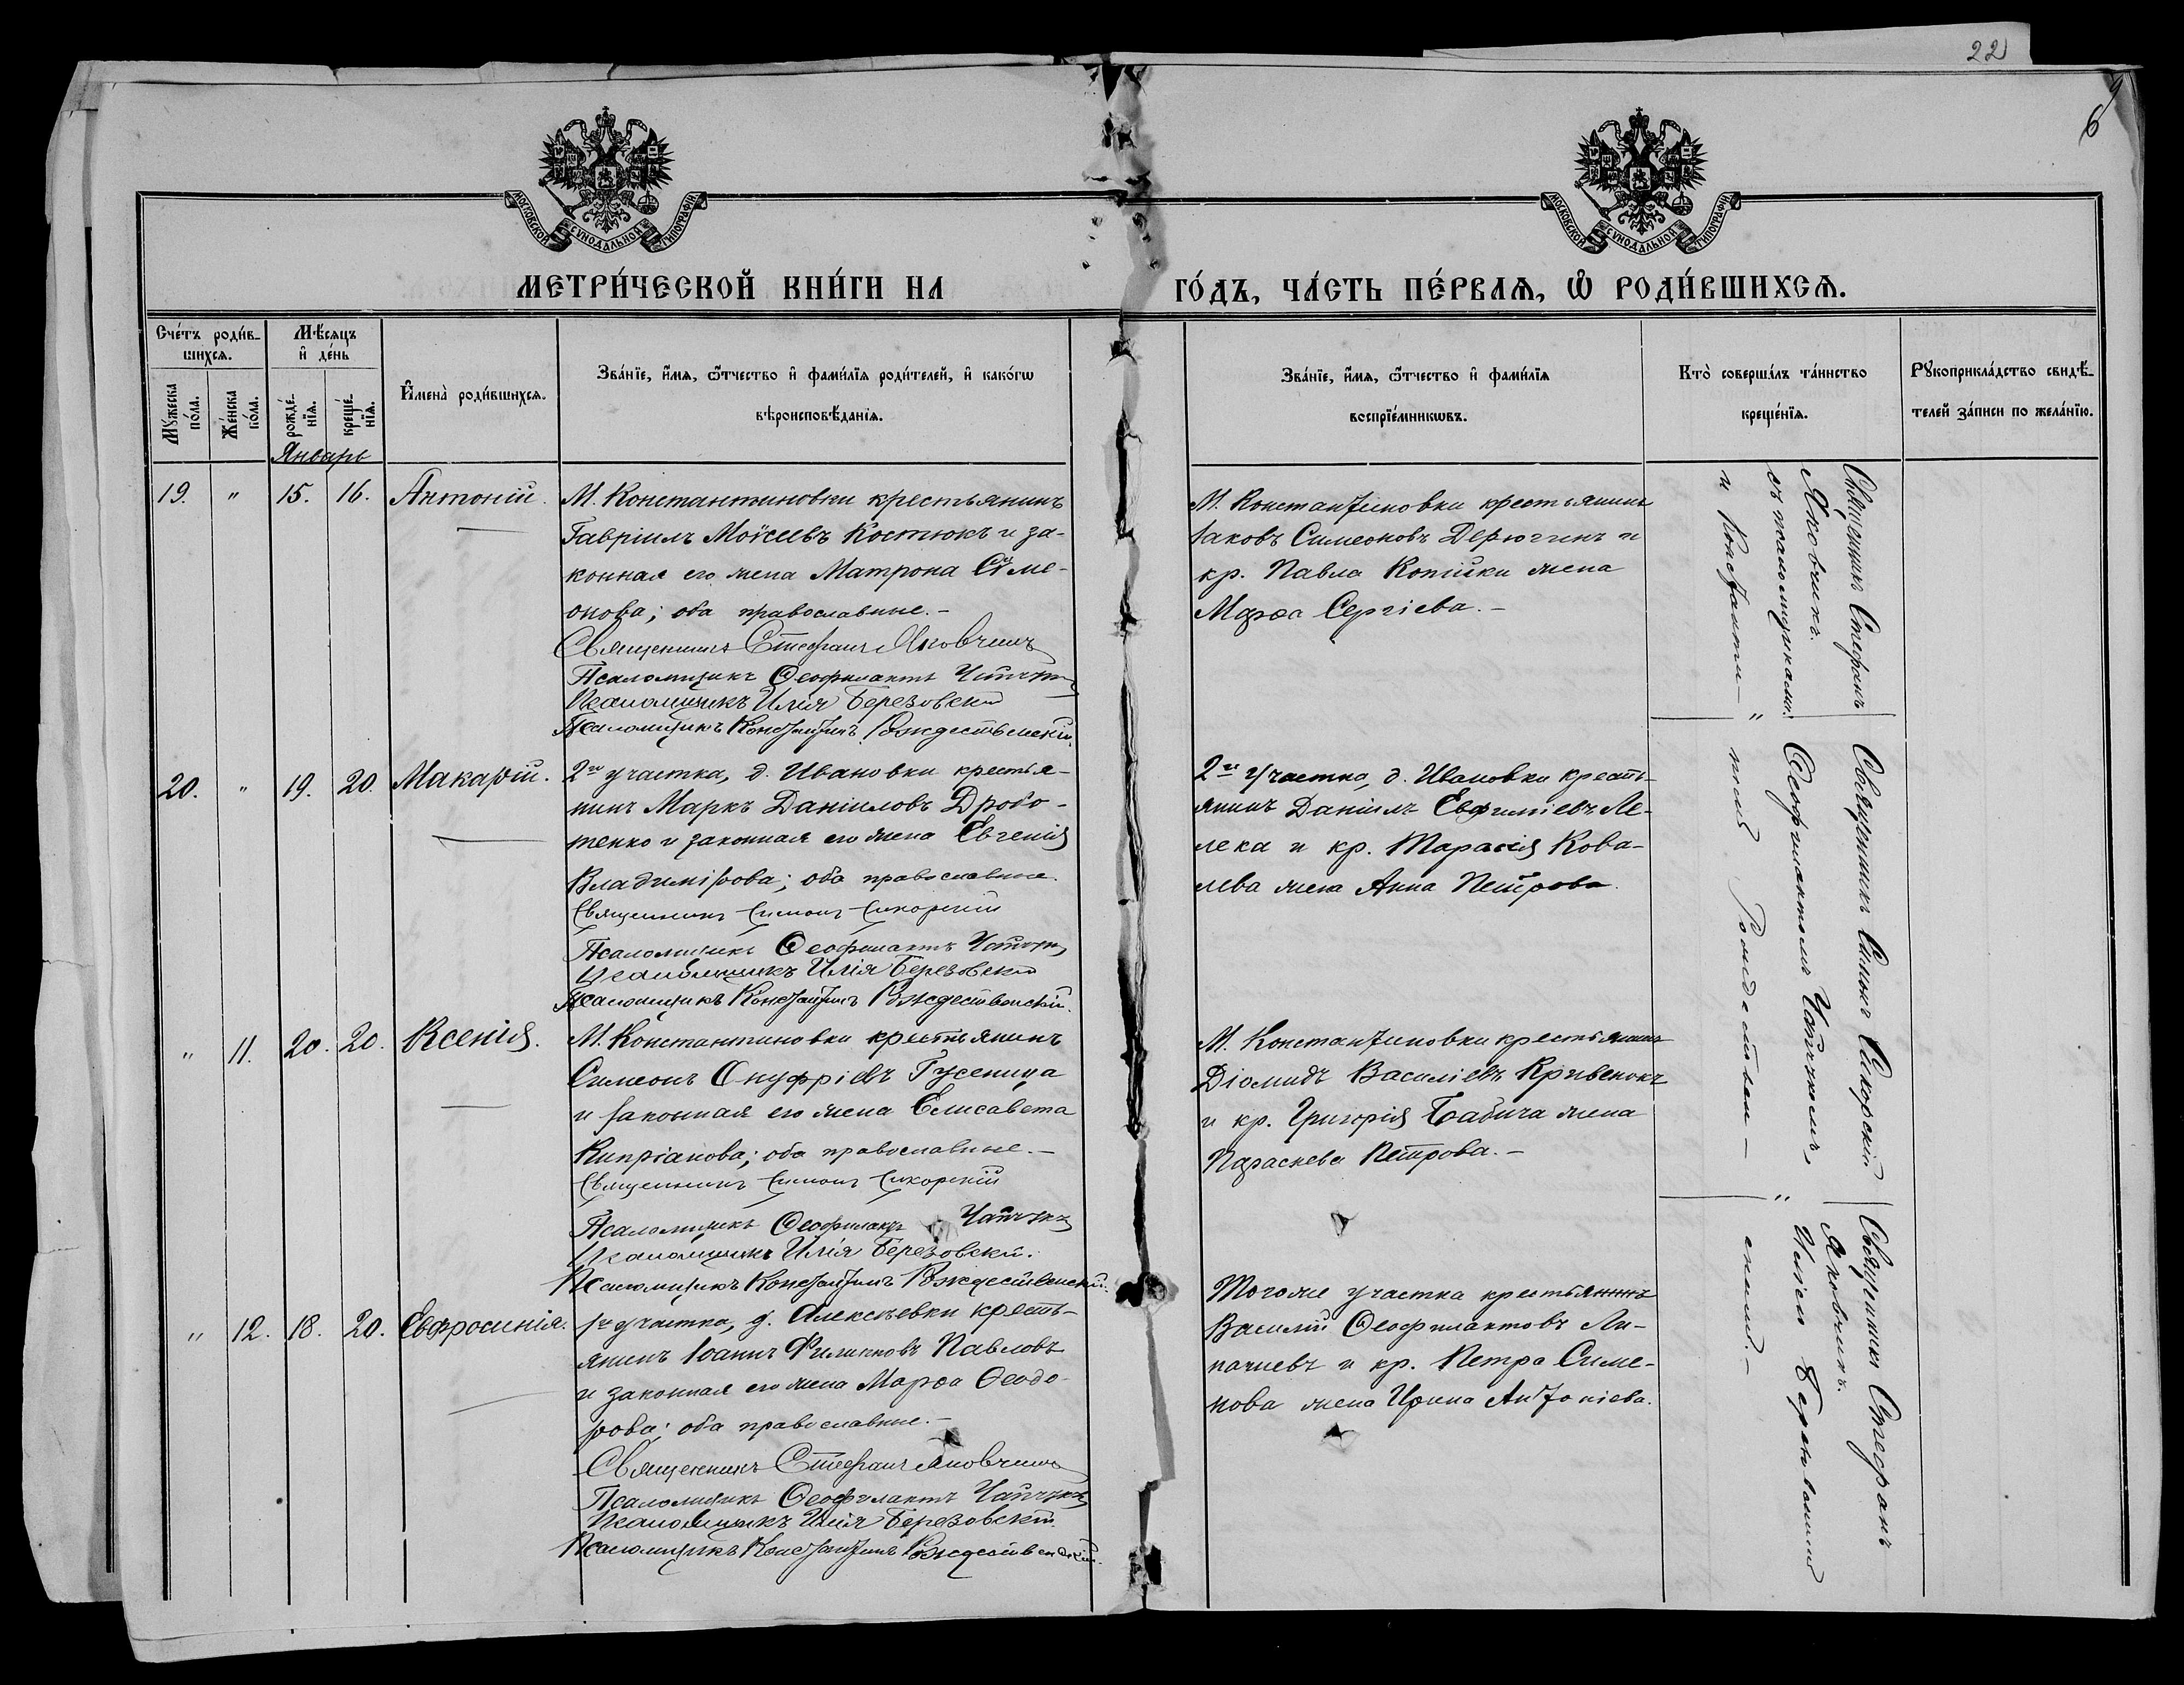 22
6
МОСКОВСКОЙ СѴНОДАЛЬНОЙ ТИПОГРАФІИ
МОСКОВСКОЙ СѴНОДАЛЬНОЙ ТИПОГРАФІИ
МЕТРИ́ЧЕСКОЙ КНИ́ГИ НА ГО́ДЪ, ЧА́СТЬ ПЕ́РВАѦ, Ѡ РОДИ́ВШИХСѦ.
Сче́тъ роди́в-
шихсѧ.
Мѣ́сѧцъ
и҆ де́нь
Мꙋжеска
по́ла.
Же́нска
по́ла.
рожде́-
нїѧ.
креще́-
нїѧ.
И҆мена̀ роди́вшихсѧ.
Зва́нїе, и҆́мѧ, ѻ҆́тчество и҆ фами́лїѧ роди́телей, и҆ како́гѡ
вѣроисповѣ́данїѧ.
Зва́нїе, и҆́мѧ, ѻ҆́тчество и҆ фами́лїѧ
воспрїе́мникѡвъ.
Кто̀ соверша́лъ та́инство
креще́нїѧ.
Рꙋкоприкла́дство свидѣ́-
телей за́писи по жела́нїю.
Январь
19. " 15. 16. Антоній.
М. Константиновки крестьянинъ
Гавріилъ Моѵсеевъ Костюкъ и за-
конная его жена Матрона Симе-
онова; оба православные.-
Священникъ Стефанъ Яковчикъ
Псаломщикъ Ѳеофилактъ
Псаломщикъ Илія Березовскій
Псаломщикъ Константинъ Рождественскій.
М. Константиновки крестьянинъ
Іаковъ Симеоновъ Дерюгинъ и
кр. Павла Копійки жена
Марѳа Сергіева.-
Священникъ Стефанъ
Яковчикъ.
съ псаломщиками:
и Константи-"
20. " 19. 20. Макарій.
2го участка, д. Ивановки крестья-
нинъ Маркъ Даніиловъ Дробо-
тенко и законная его жена Евгенія
Владимірова; оба православные.
Священникъ Симонъ Сикорскій
Псаломщикъ Ѳеофилактъ
Псаломщикъ Илія Березовскій
Псаломщикъ Константинъ Рождественскій.
2го участка, д. Ивановки кресть-
янинъ Даніилъ Евфиміевъ Ле-
лека и кр. Тарасія Кова-
лева жена Анна Петрова.
Священникъ Симонъ Сикорскій
Ѳеофилактомъ
номъ Рождествен-"
" 11. 20. 20. Ксенія.
М. Константиновки крестьянинъ
Симеонъ Онуфріевъ Гусеница
и законная его жена Елисавета
Кипріанова; оба православные.-
Священникъ Симонъ Сикорскій
Псаломщикъ Ѳеофилактъ
Псаломщикъ Илія Березовскій.
Псаломщикъ Константинъ Рождественскій.
М. Константиновки крестьянинъ
Діомидъ Василіевъ Кривенокъ
и кр. Григорія Бабича жена
Параскева Петрова.-
" 12. 18. 20. Евфросинія.
1го участка, д. Алексѣевки кресть-
янинъ Іоаннъ Филипповъ Павловъ
и законная его жена Марѳа Ѳеодо-
рова; оба православные.-
Священникъ Стефанъ Яковчикъ
Псаломщикъ Ѳеофилактъ
Псаломщикъ Илія Березовскій.
Псаломщикъ Константинъ Рождественскій.
Того же участка крестьянинъ
Василій Ѳеофилактовъ
и кр. Петра Симе-
нова жена Ирина Антоніева.
Священникъ Стефанъ
Яковчикъ.
Иліею Березовскимъ
скимъ.-